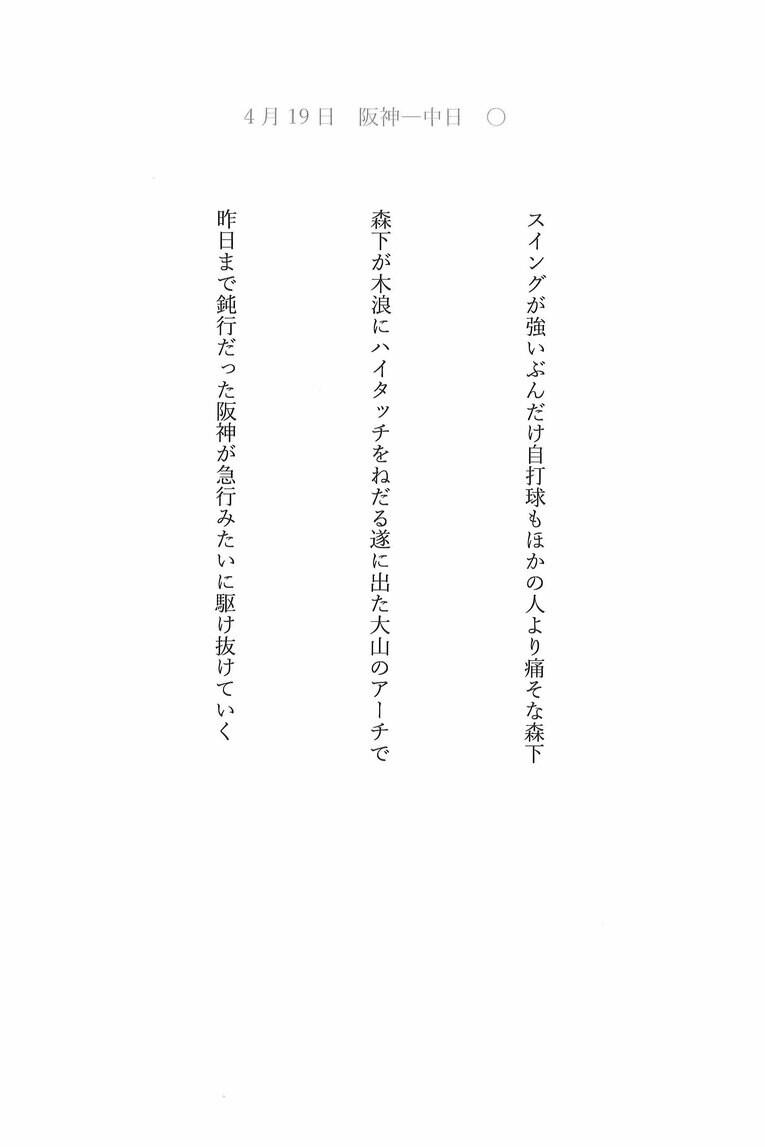 4月19日　阪神―中日　○
スイングが強いぶんだけ自打球もほかの人より痛そな森下
森下が木浪にハイタッチをねだる遂に出た大山のアーチで
昨日まで鈍行だった阪神が急行みたいに駆け抜けていく